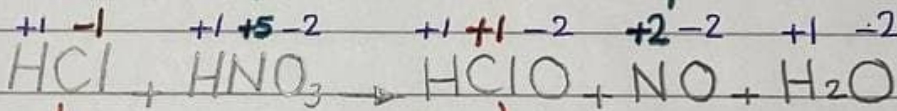 +1 -1 +1 +5 -2 +1 +1 -2 +2 -2 +1 -2
HCl + HNO₃ → HClO + NO + H₂O